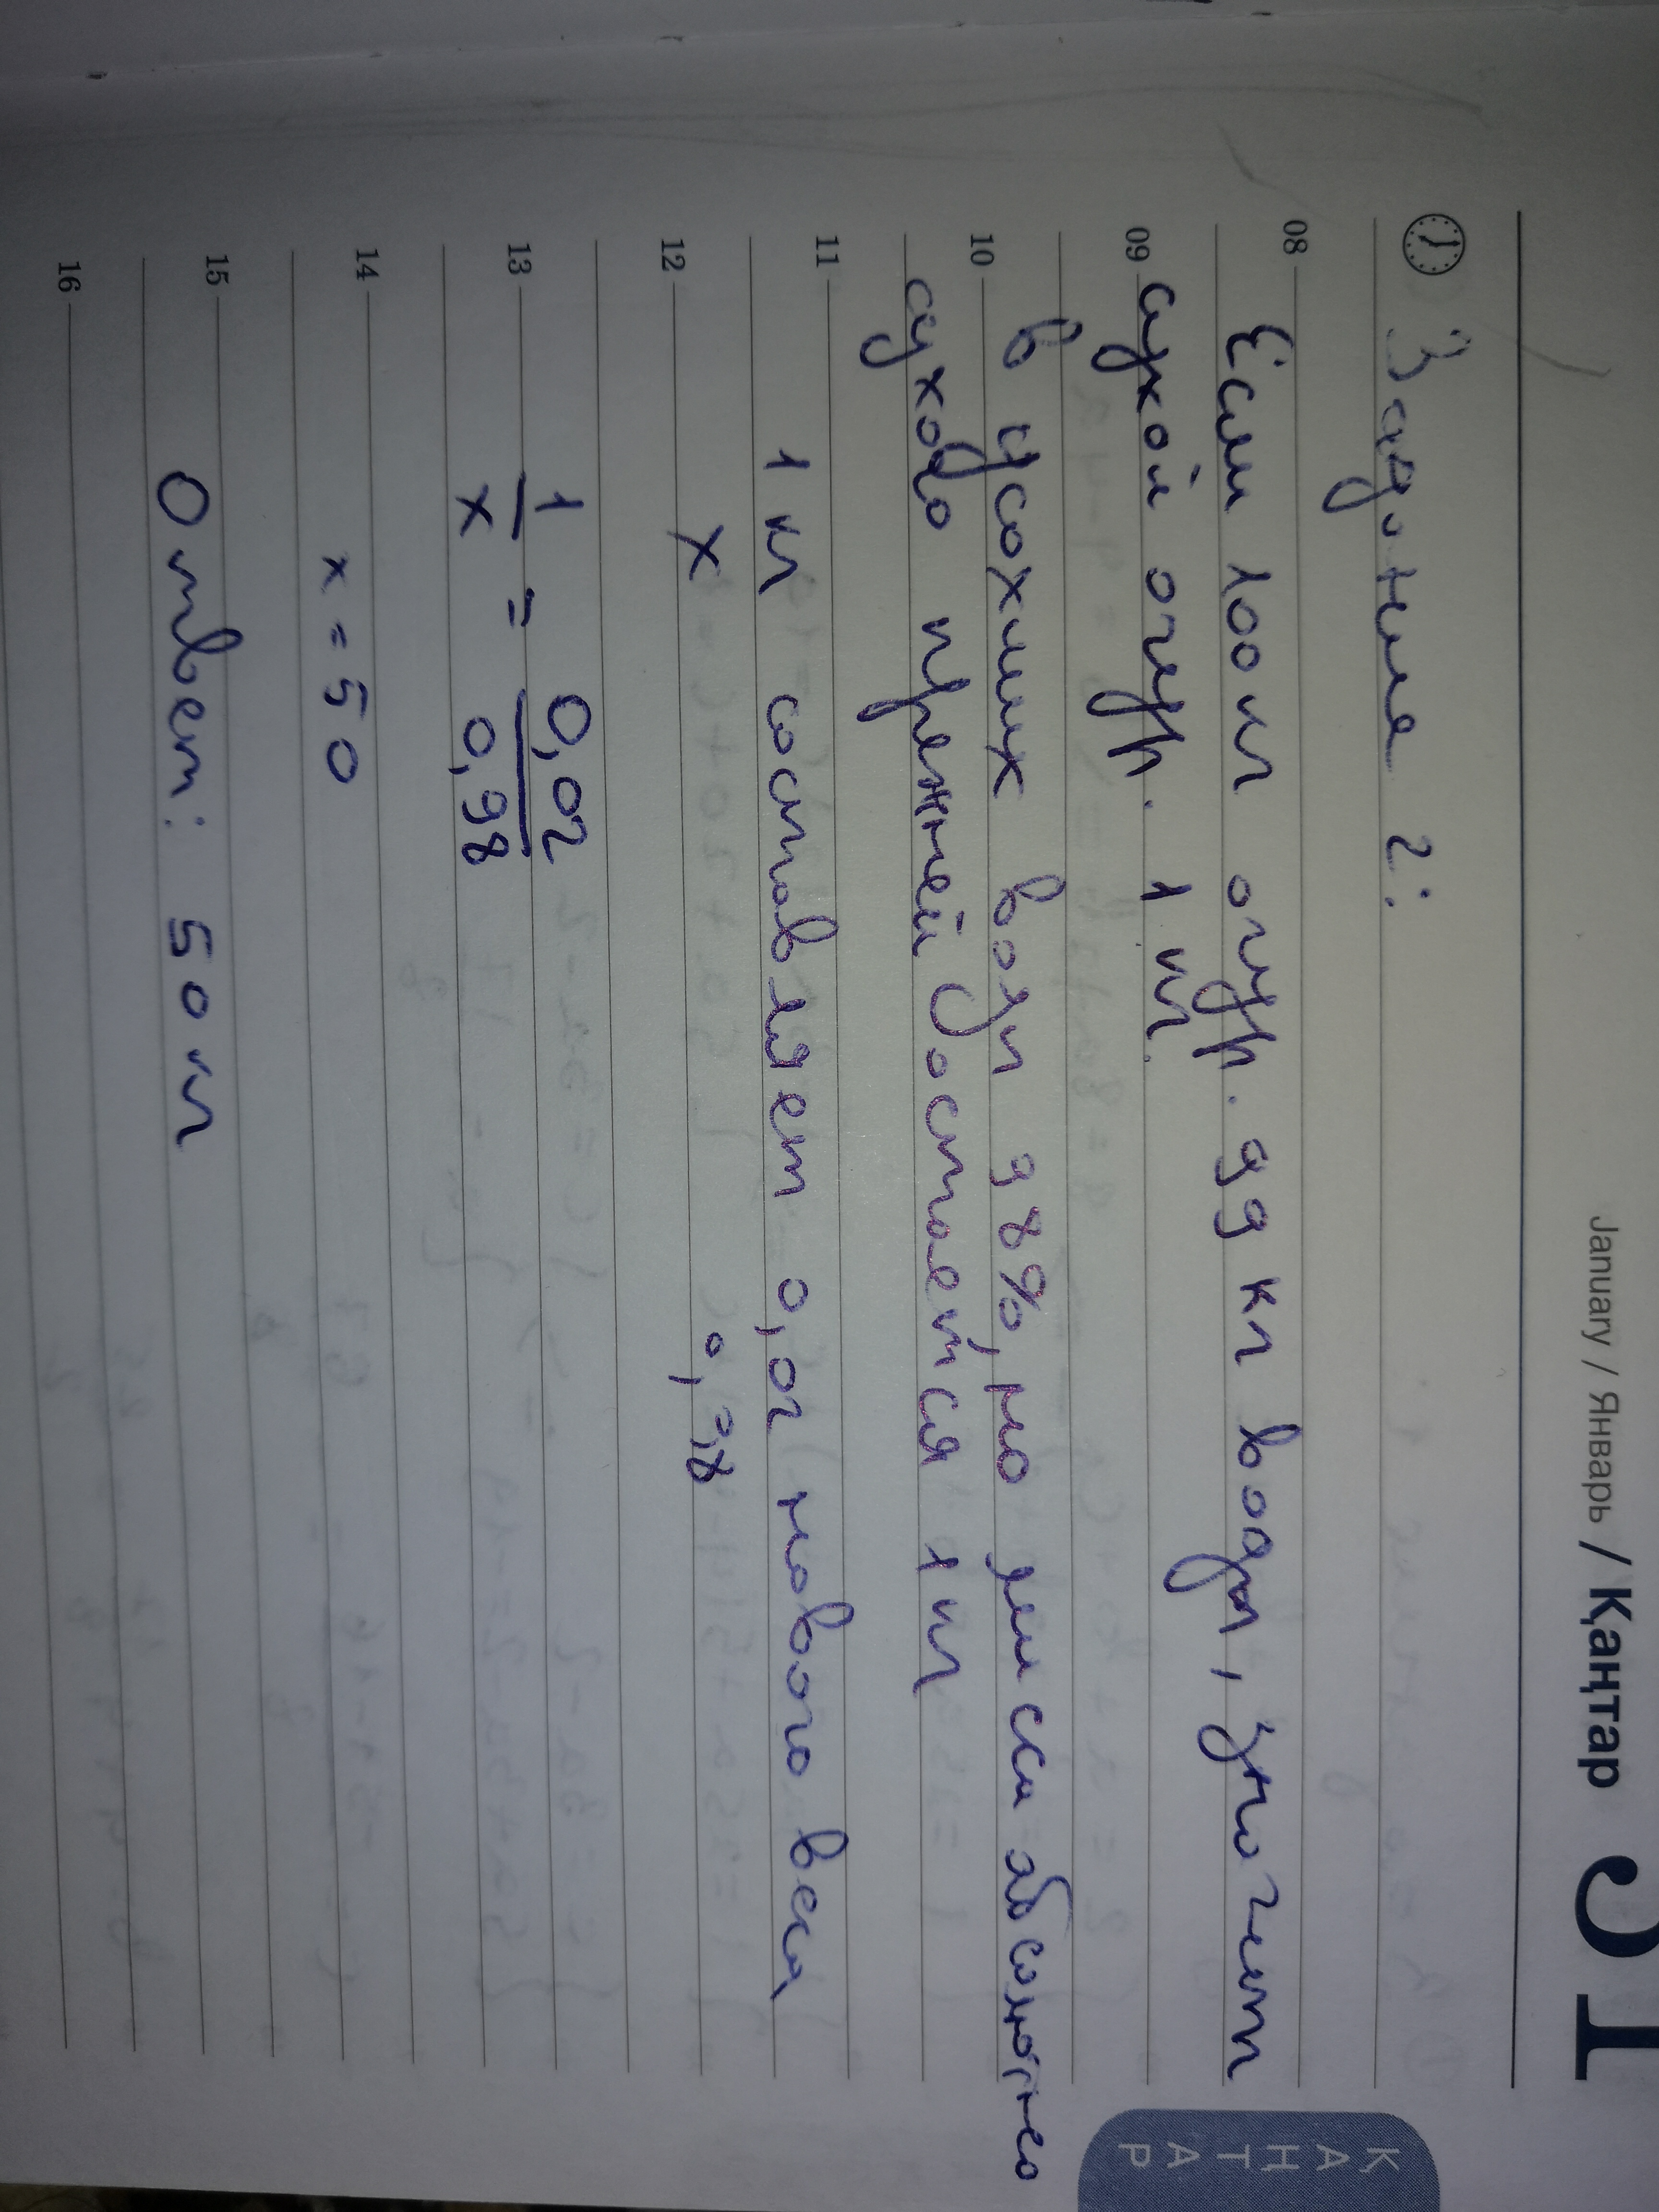 January / Январь / Қаңтар 31
Задание 2:
ҚАҢТАР
08
Если 100 кг огур. 99 кг воды, значит
09 сухой огур. 1 кг.
В усохших воды 98%, но масса абсолютно
10
сухого прежней остается 1 кг
11
1 кг составляет 0,02 нового веса
x 0,98
12
1/x = 0,02/0,98
13
14
x = 50
15
Ответ: 50 кг
16